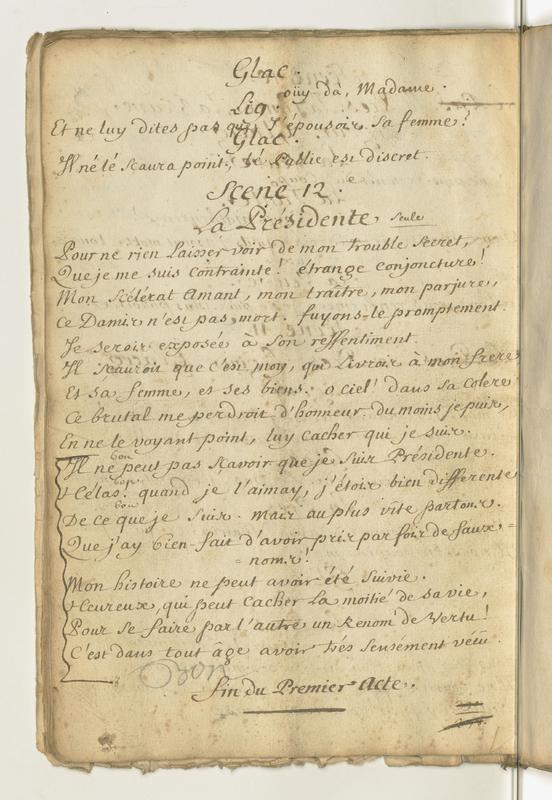 Glac.
oüy da, Madame.
Liq.
Et ne luy dites pas que j'épousois sa femme!
Glac.
Il né lé sçaura point; lé Public est discret.
Scene 12.e
La Présidente, seule
Pour ne rien laisser voir de mon trouble secret,
Que je me suis contrainte! étrange conjoncture!
Mon scélérat amant, mon traître, mon parjure,
Ce Damis n'est pas mort. fuyons-le promptement.
Je serois exposée à son ressentiment.
Il sçauroit que c'est moy, qui livrois à mon frere
Et sa femme, et ses biens. o ciel! dans sa colere
Ce brutal me perdroit d'honneur. du moins je puis,
En ne le voyant point, luy cacher qui je suis.
bon
Il ne peut pas sçavoir que je suis Présidente.
bon
hélas! quand je l'aimay, j'étois bien differente
bon
De ce que je suis. mais au plus vîte partons.
Que j'ay bien-fait d'avoir pris par fois de faux =
= noms!
Mon histoire ne peut avoir été suivie.
heureux, qui peut cacher la moitié de sa vie,
Pour se faire par l'autre un renom de vertu!
C'est dans tout âge avoir trés sensément vécu.
Bon
fin du Premier Acte.